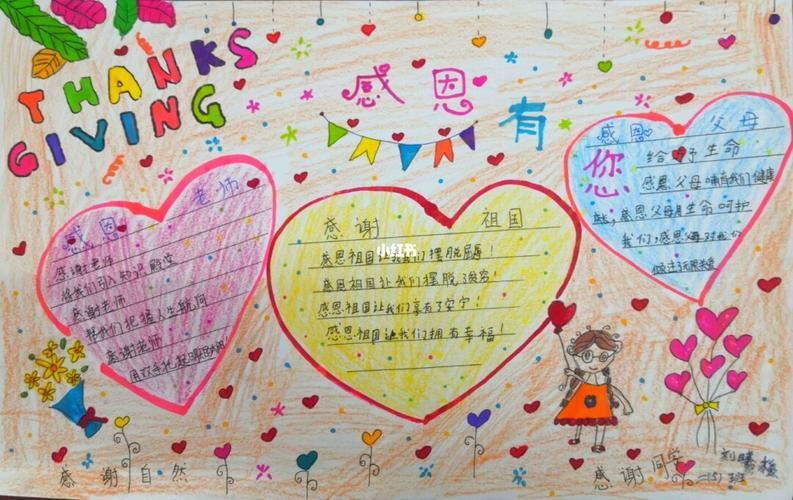 THANKS
GIVING
感恩有您
感恩 老师
感谢老师
将我们引入知识殿堂
感谢老师
帮我们把握人生航向
感谢老师
用双手托起
感谢 祖国
感恩祖国让我们摆脱屈辱!
感恩祖国让我们摆脱了贫穷!
感恩祖国让我们享有了安宁!
感恩祖国让我们拥有幸福!
小红书
感恩 父母
给予生命
感恩父母哺育我们健康
感恩父母用生命呵护
我们,感恩父母对我们
感谢自然
感谢同学
二(5)班